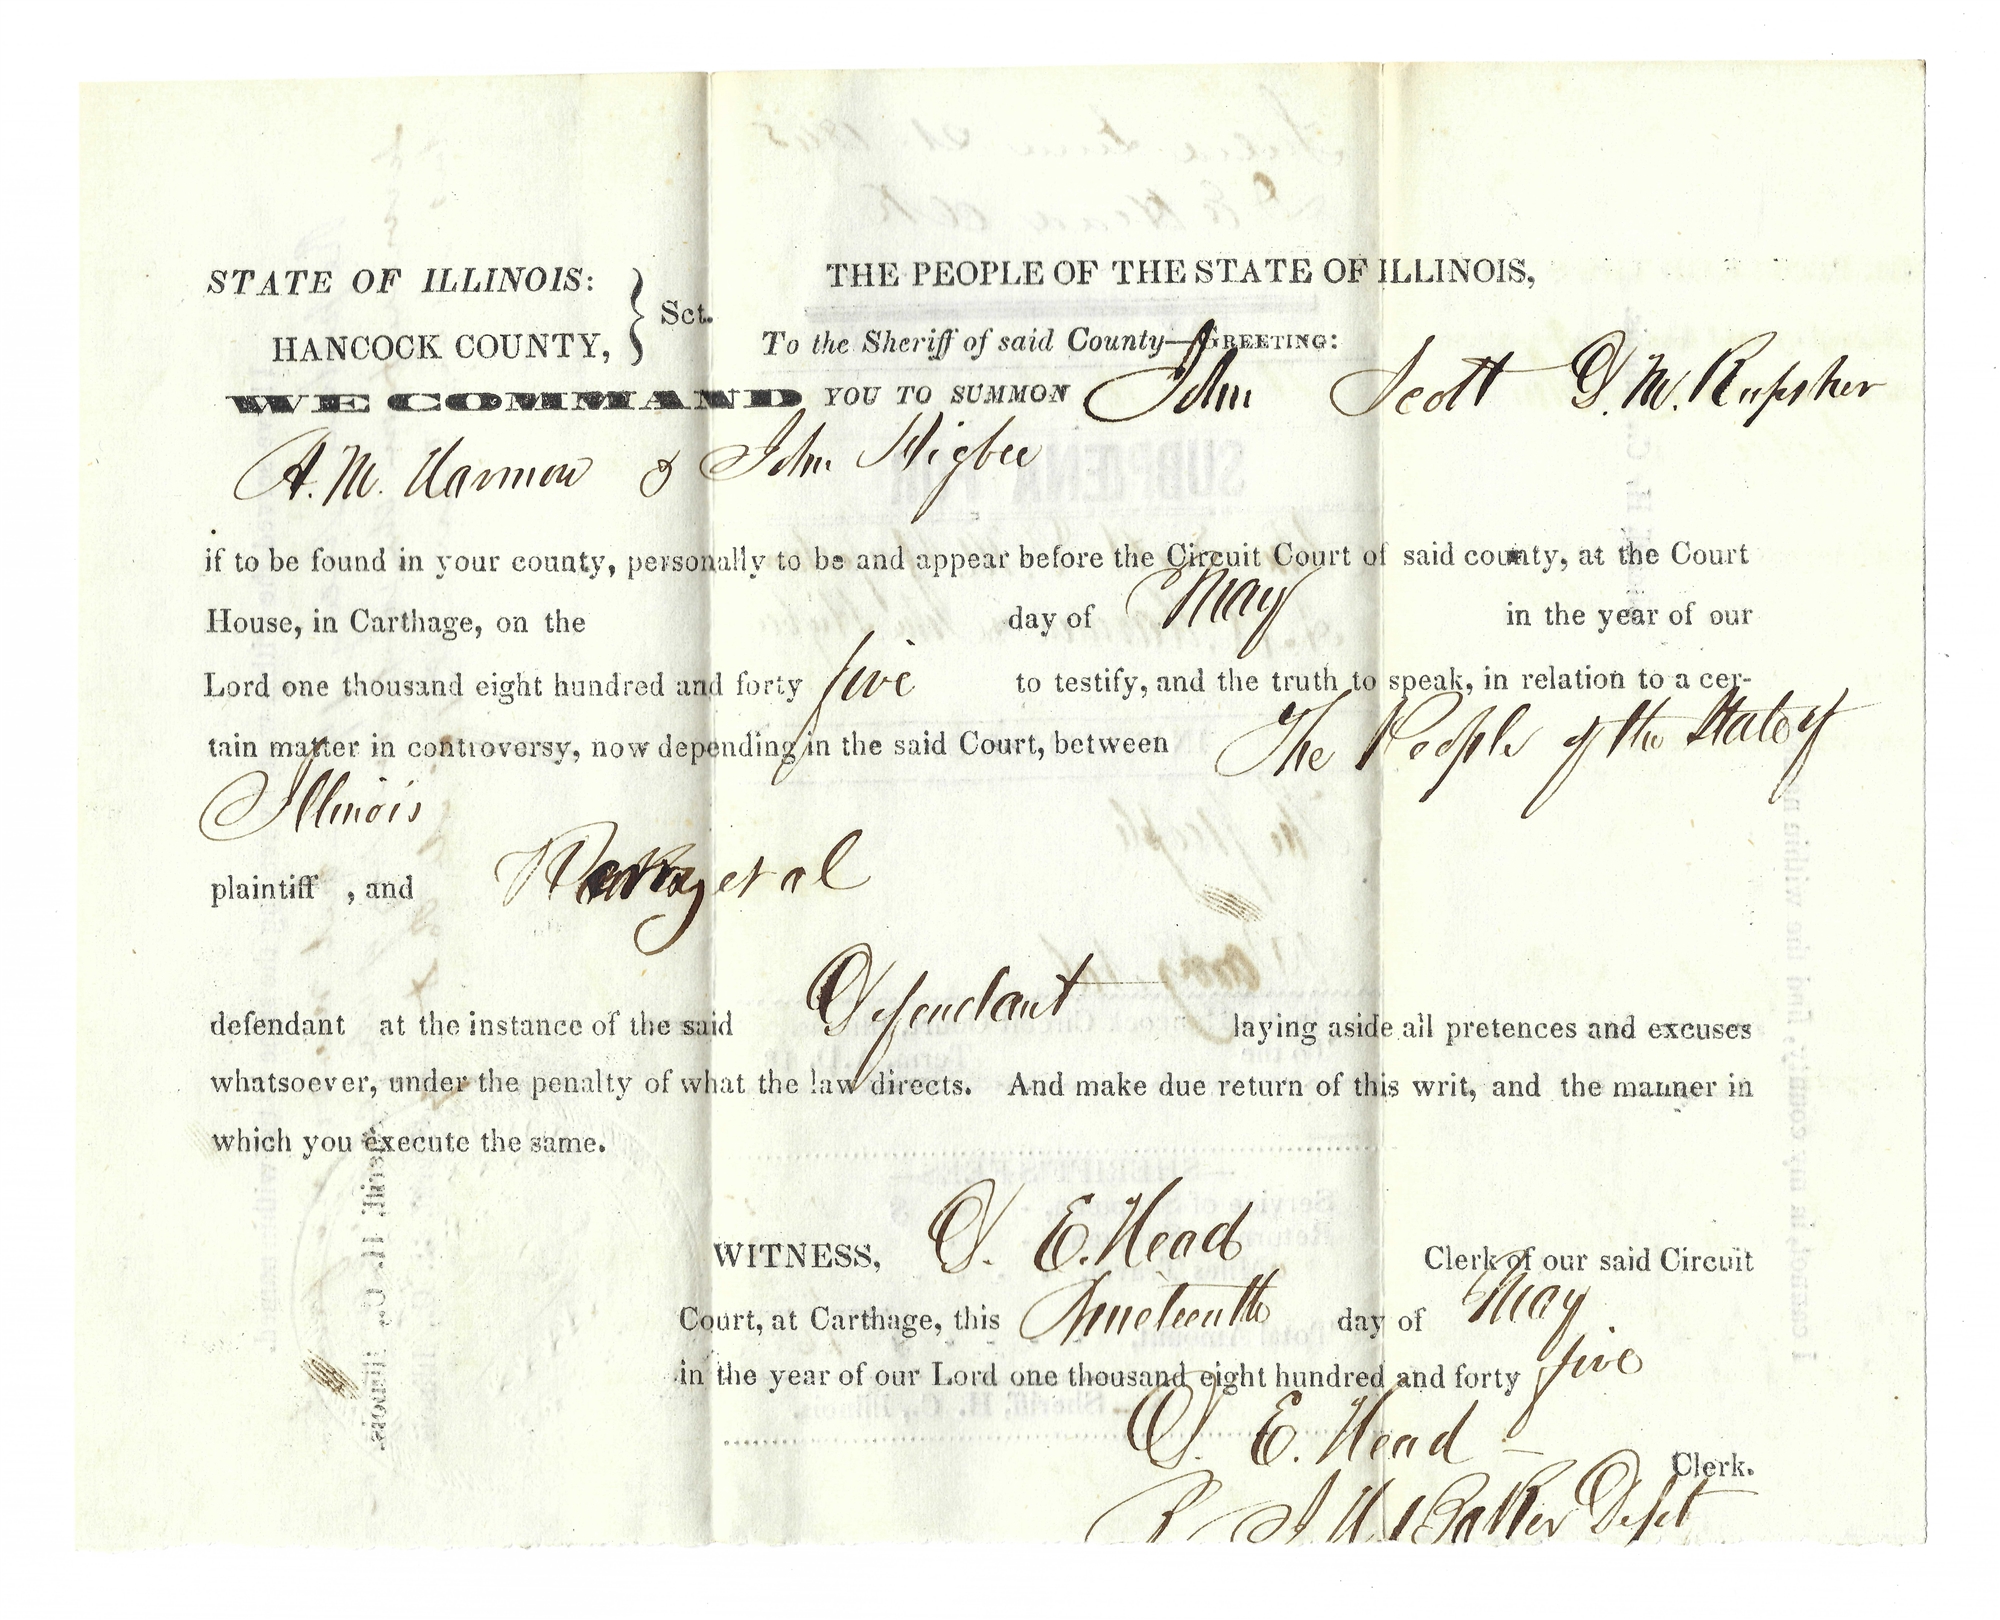 STATE OF ILLINOIS:
HANCOCK COUNTY, } Sct.
THE PEOPLE OF THE STATE OF ILLINOIS,
To the Sheriff of said County—GREETING:
WE COMMAND YOU TO SUMMON John Scott D. M. Rupsher
A. M. Harmon & John Higbee
if to be found in your county, personally to be and appear before the Circuit Court of said county, at the Court
House, in Carthage, on the day of May in the year of our
Lord one thousand eight hundred and forty five to testify, and the truth to speak, in relation to a cer-
tain matter in controversy, now depending in the said Court, between The People of the State of
Illinois
plaintiff , and et al
defendant at the instance of the said Defendant laying aside all pretences and excuses
whatsoever, under the penalty of what the law directs. And make due return of this writ, and the manner in
which you execute the same.
WITNESS, D. E. Head Clerk of our said Circuit
Court, at Carthage, this Nineteenth day of May
in the year of our Lord one thousand eight hundred and forty five
D. E. Head
Clerk.
Baker Dept